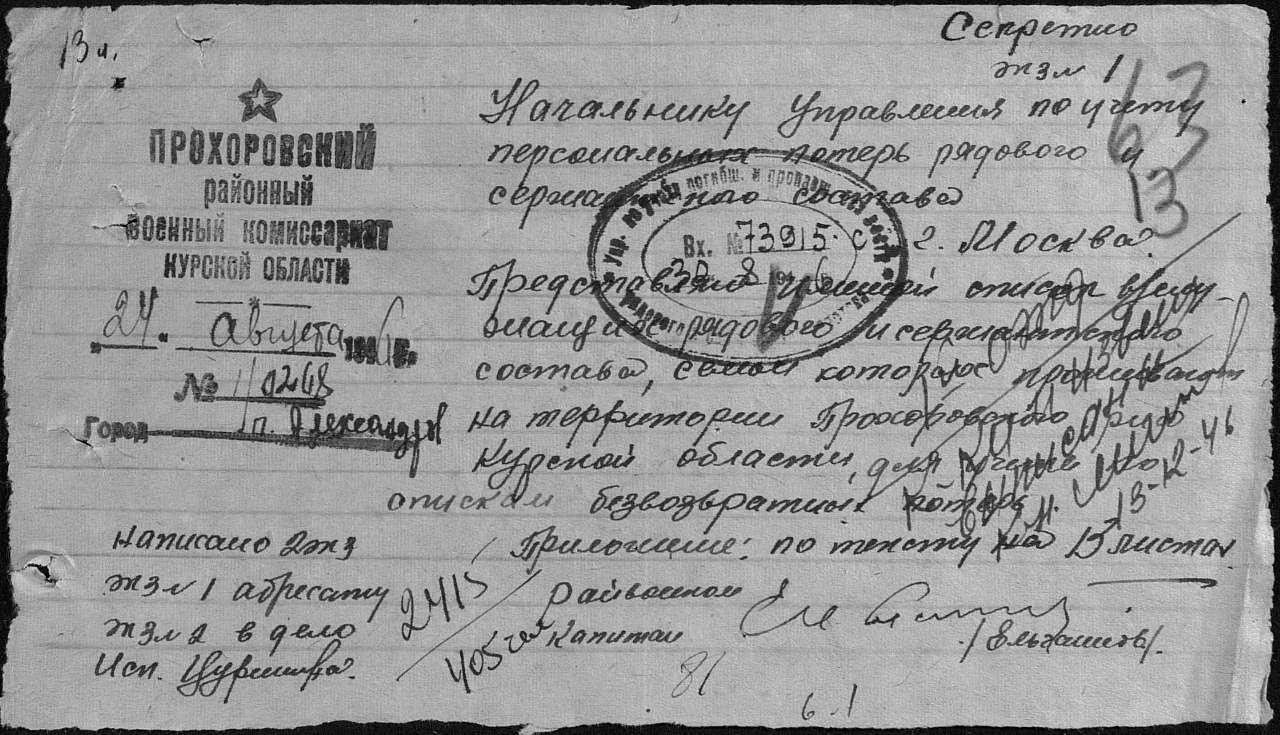 13 л.
Секретно
экз № 1
67
63
13
ПРОХОРОВСКИЙ
районный
военный комиссариат
КУРСКОЙ ОБЛАСТИ
"24" Августа 1946 г.
№ 1/0268
Город п. Александров
Начальнику Управления по учету
персональных потерь рядового и
сержантского состава
г. Москва
Упр. по учету погибш. и пропавш. без вести
рядового
Вх. № 73915 с
30 8 1946
Представляю именной список
рядового и сержантского
состава, семьи которых проживают
на территории Прохоровского р-на
Курской области, для
спискам безвозвратных потерь
13-12-46
Приложение: по тексту на 13 листах
Написано 2 экз
экз № 1 адресату
экз № 2 в дело
Исп.
2415
405
Райвоенком
Капитан
/Ельхашев/.
81
6.1